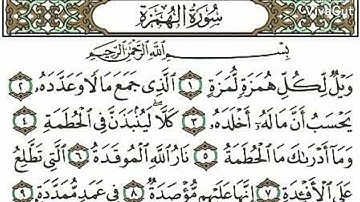 سُورَةُ الهُمَزَةِ
VivaGut
بِسْمِ اللَّهِ الرَّحْمَٰنِ الرَّحِيمِ
وَيْلٌ لِّكُلِّ هُمَزَةٍ لُّمَزَةٍ ١ الَّذِي جَمَعَ مَالًا وَعَدَّدَهُ ٢
يَحْسَبُ أَنَّ مَالَهُ أَخْلَدَهُ ٣ كَلَّا لَيُنبَذَنَّ فِي الْحُطَمَةِ ٤
وَمَا أَدْرَاكَ مَا الْحُطَمَةُ ٥ نَارُ اللَّهِ الْمُوقَدَةُ ٦ الَّتِي تَطَّلِعُ
عَلَى الْأَفْئِدَةِ ٧ إِنَّهَا عَلَيْهِم مُّؤْصَدَةٌ ٨ فِي عَمَدٍ مُّمَدَّدَةٍ ٩